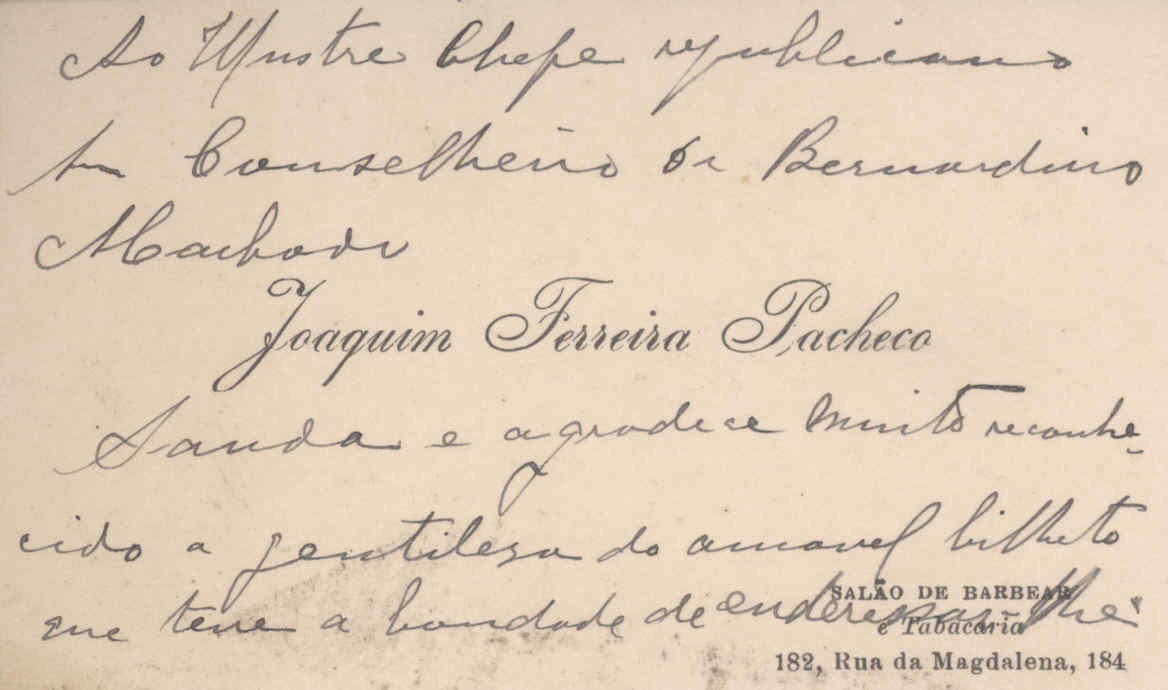 Ao Illustre Chefe republicano
Sr Conselheiro Dr Bernardino
Machado
Joaquim Ferreira Pacheco
Sauda e agradece muito reconhe-
cido a gentilesa do amavel bilhete
que teve a bondade de endereçar-lhe.
SALÃO DE BARBEAR
e Tabacaria
182, Rua da Magdalena, 184